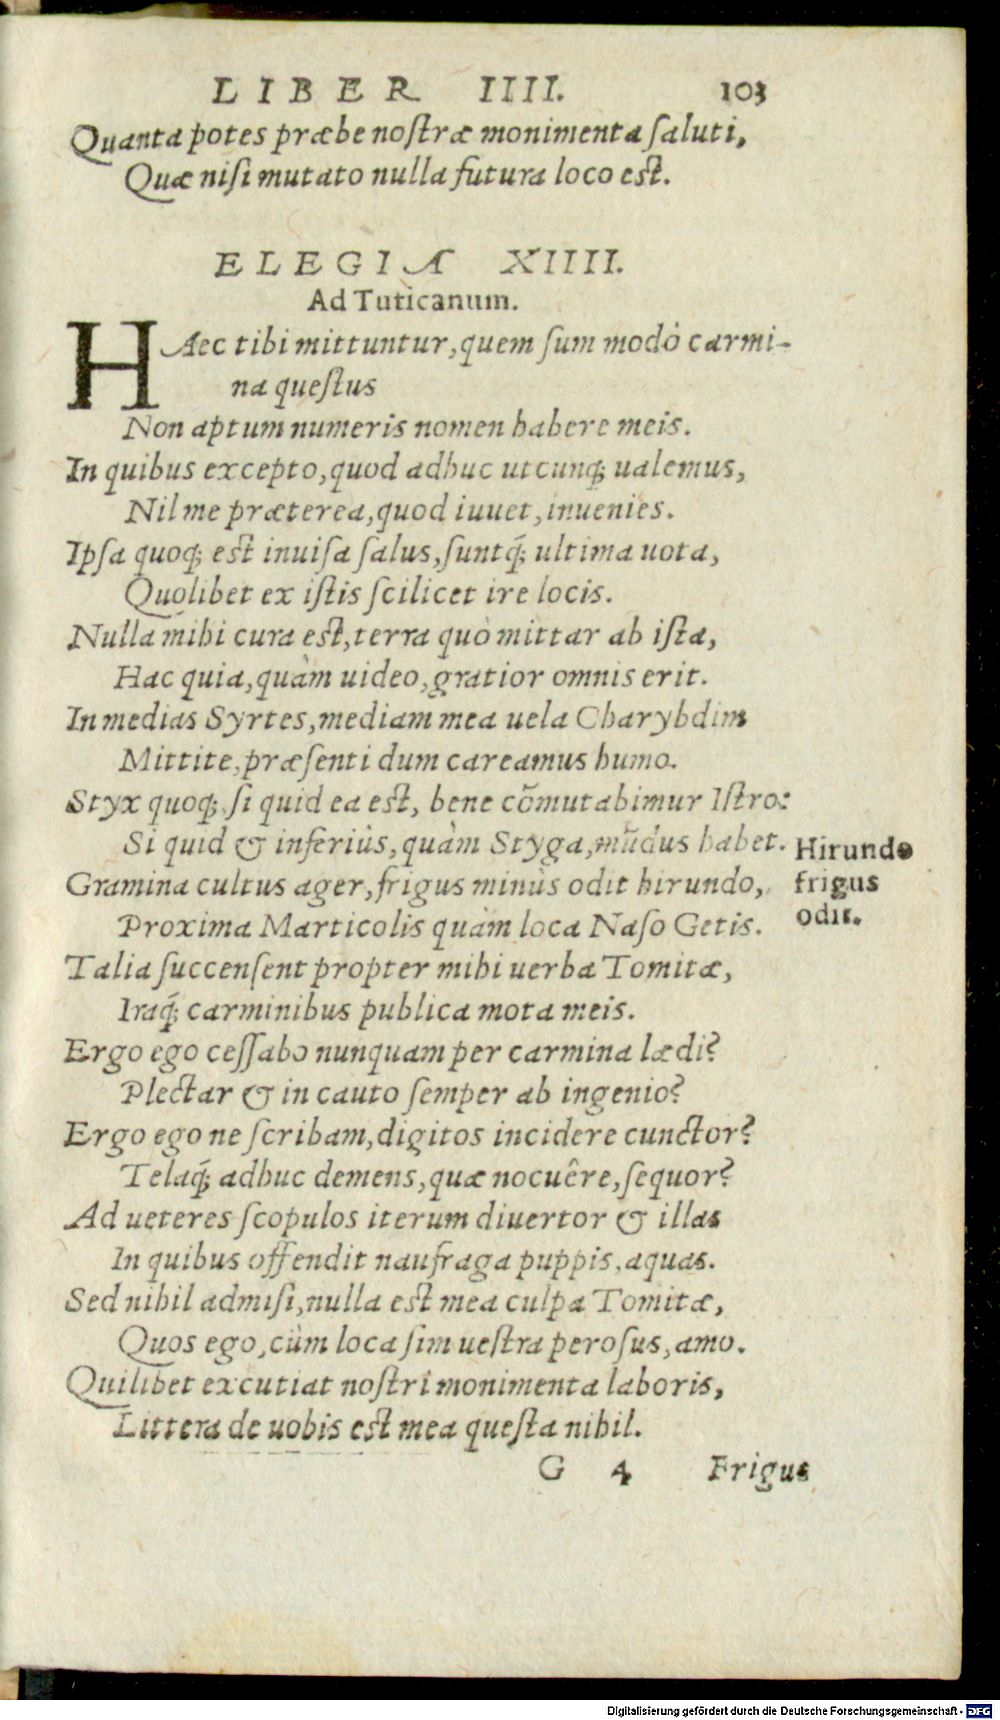 LIBER IIII. 103
Quanta potes præbe noſtræ monimenta ſaluti,
Quæ niſi mutato nulla futura loco eſt.
ELEGIA XIIII.
Ad Tuticanum.
HAec tibi mittuntur, quem ſum modò carmi-
na queſtus
Non aptum numeris nomen habere meis.
In quibus excepto, quod adhuc utcunq; ualemus,
Nil me præterea, quod iuuet, inuenies.
Ipſa quoq; eſt inuiſa ſalus, ſuntq́; ultima uota,
Quolibet ex iſtis ſcilicet ire locis.
Nulla mihi cura eſt, terra quò mittar ab iſta,
Hac quia, quàm uideo, gratior omnis erit.
In medias Syrtes, mediam mea uela Charybdim
Mittite, præſenti dum careamus humo.
Styx quoq; ſi quid ea eſt, bene cõmutabimur Iſtro:
Si quid & inferiùs, quàm Styga, mũdus habet.
Gramina cultus ager, frigus minùs odit hirundo,
Proxima Marticolis quàm loca Naſo Getis.
Hirundo
frigus
odit.
Talia ſuccenſent propter mihi uerba Tomitæ,
Iraq́; carminibus publica mota meis.
Ergo ego ceſſabo nunquam per carmina lædi?
Plectar & in cauto ſemper ab ingenio?
Ergo ego ne ſcribam, digitos incidere cunctor?
Telaq́; adhuc demens, quæ nocuêre, ſequor?
Ad ueteres ſcopulos iterum diuertor & illas
In quibus offendit naufraga puppis, aquas.
Sed nihil admiſi, nulla eſt mea culpa Tomitæ,
Quos ego, cùm loca ſim ueſtra peroſus, amo.
Quilibet excutiat noſtri monimenta laboris,
Littera de uobis eſt mea queſta nihil.
G 4 Frigus
Digitalisierung gefördert durch die Deutsche Forschungsgemeinschaft - DFG